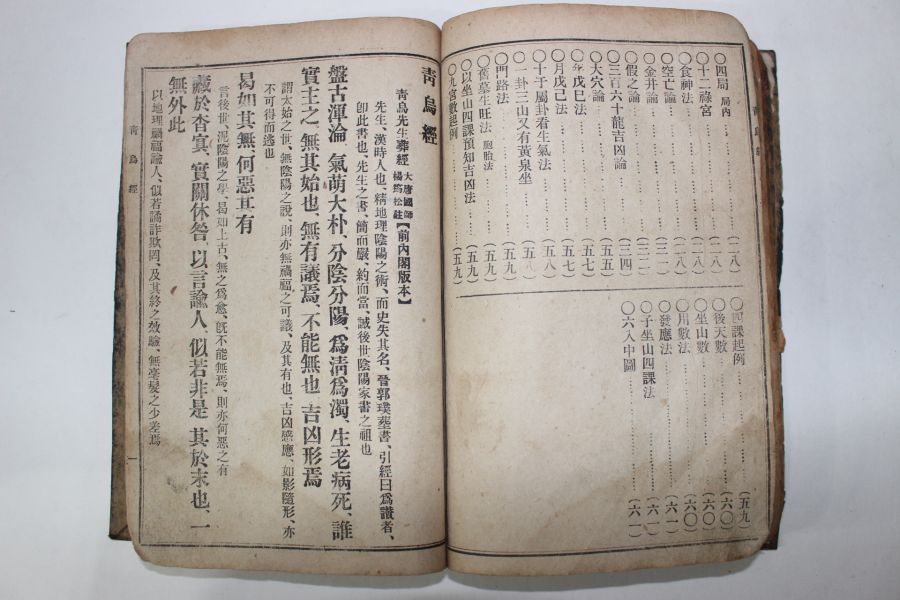 ○四局 局內 ………(一八)
○十二祿宮 ………(二八)
○食神法 ………(二八)
○空亡論 ………
○金井論 ………
○假之論 ………
○三百六十龍吉凶論 ………(三四)
○大穴論 ………(五五)
○年戊己法 ………(五六)
○月戊己法 ………(五七)
○十干屬卦看生氣法 ………(五八)
○一卦三山又有黃泉坐 ………(五八)
○門路法 ………(五九)
○舊墓生旺法 胞胎法 ………(五九)
○以坐山四課預知吉凶法 ………(五九)
○九宮數起例 ………(五九)
○四課起例 ………(五九)
○後天數 ………(六〇)
○坐山數 ………(六〇)
○川數法 ………(六〇)
○發應法 ………(六一)
○子坐山四課法 ………(六一)
○六入中圖 ………(六一)
靑烏經
靑烏先生葬經 大唐國師 楊筠松註【前內閣版本】
先生、漢時人也、精地理陰陽之術、而史失其名、晉郭璞葬書、引經曰爲證者、
卽此書也、先生之書、簡而嚴、約而當、誠後世陰陽家書之祖也
盤古渾淪、氣萌大朴、分陰分陽、爲淸爲濁、生老病死、誰
實主之、無其始也、無有議焉、不能無也、吉凶形焉
謂太始之世、無陰陽之說、則亦無禍福之可議、及其有也、吉凶感應、如影隨形、亦
不可得而逃也
曷如其無、何惡其有
言後世、泥陰陽之學、曷如上古、無之爲愈、旣不能無焉、則亦何惡之有
藏於杳冥、實關休咎、以言諭人、似若非是、其於末也、一
無外此
以地理禍福諭人、似若譎詐欺罔、及其終之效驗、無毫髮之少差焉
靑烏經
一